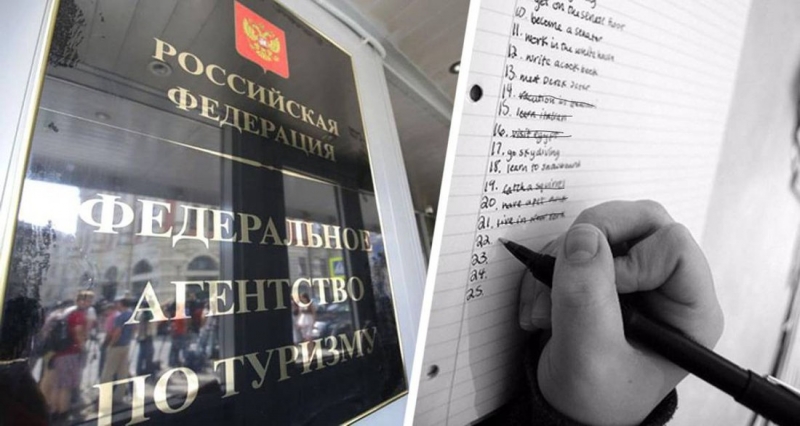 РОССИЙСКАЯ
ФЕДЕРАЦИЯ
ФЕДЕРАЛЬНОЕ
АГЕНТСТВО
ПО ТУРИЗМУ
get on
10. become a senator
11. work in the white
12. write a cook book
13. meet Derek
14. vacation in
15. learn italian
16. visit egypt
17. go skydiving
18. learn to
19. catch a squirrel
20. have a pet
21. live in
22.
23.
24.
25.